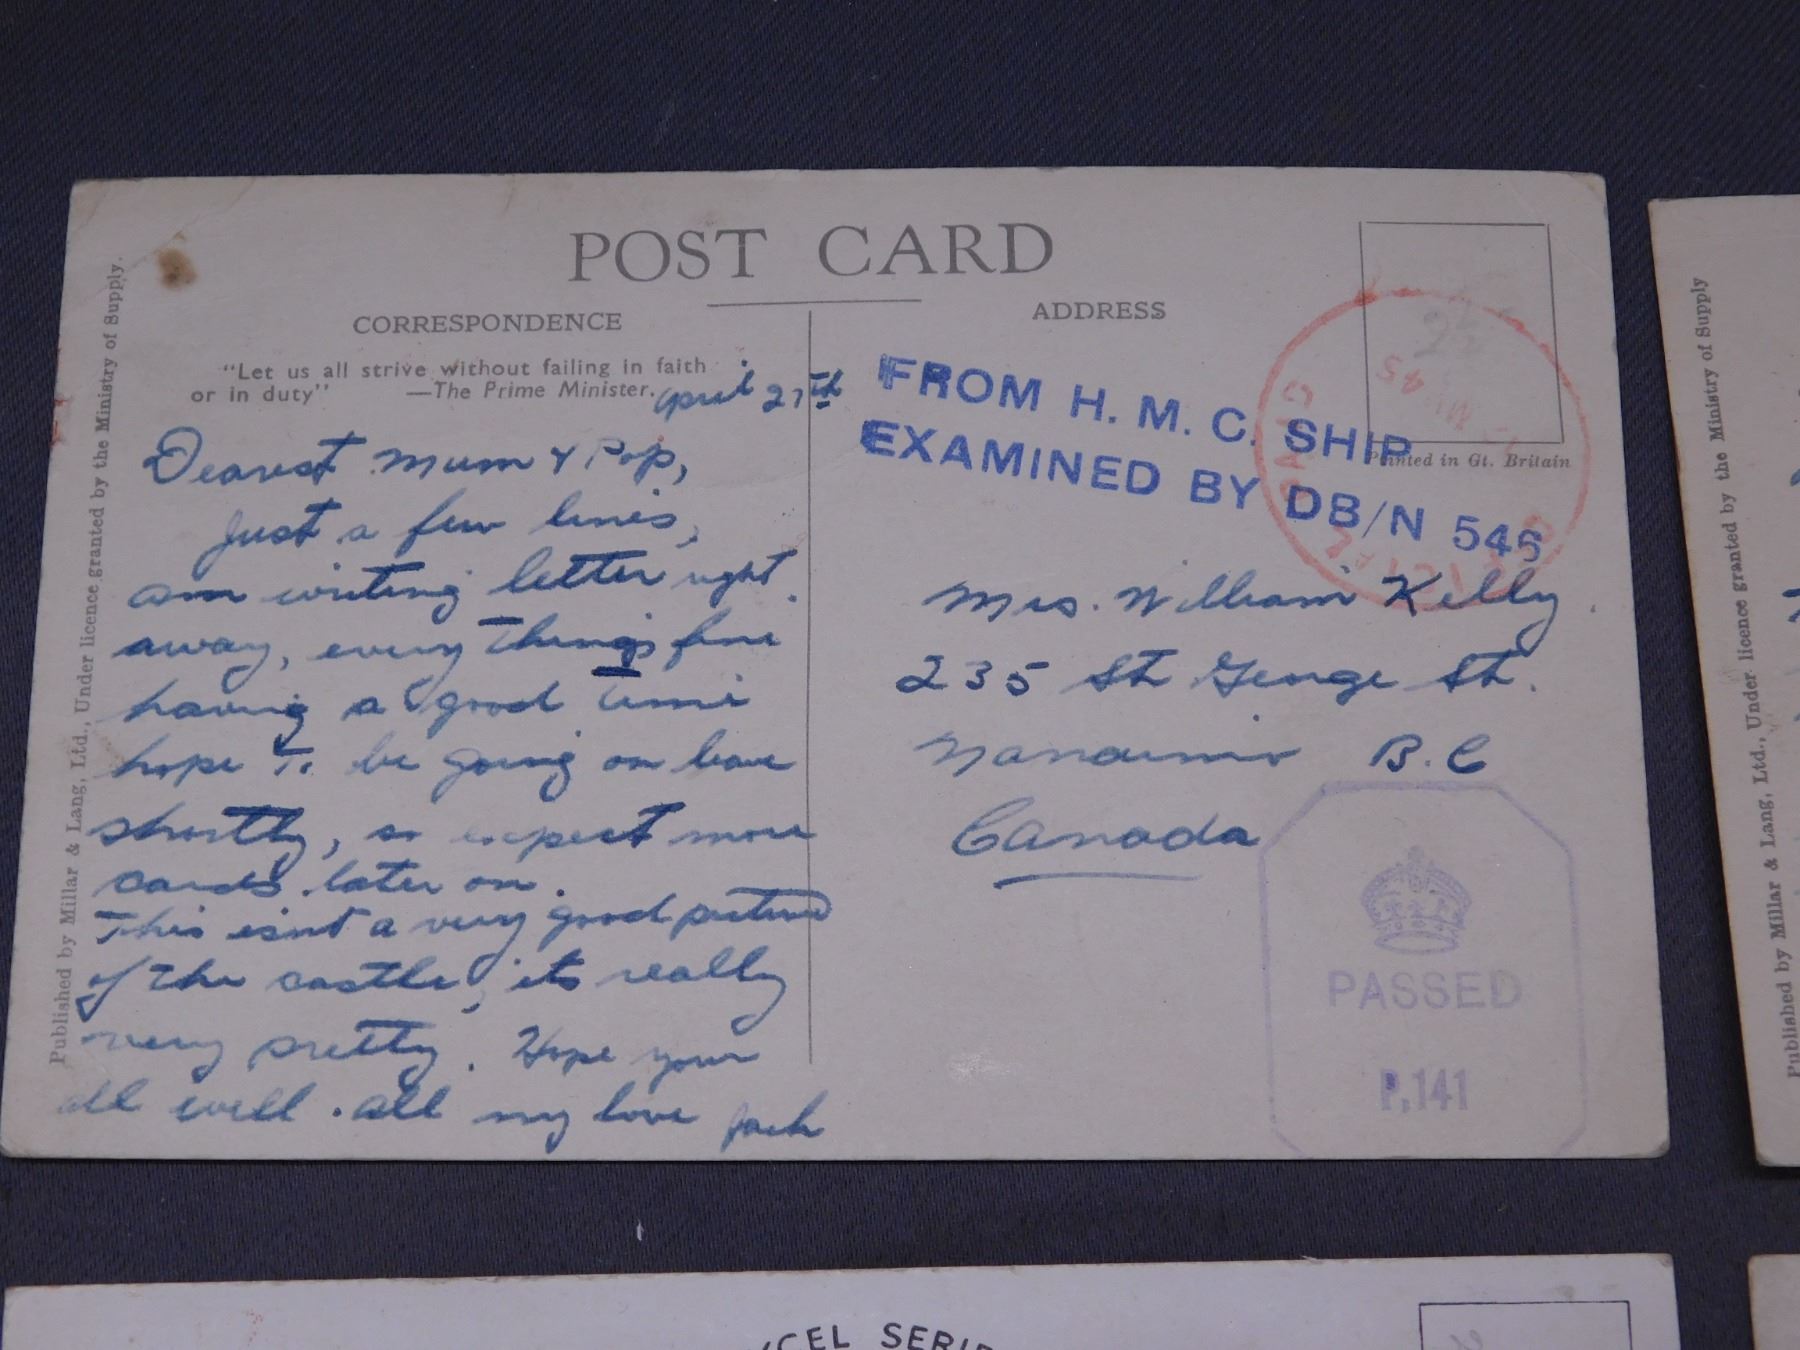 POST CARD
CORRESPONDENCE
ADDRESS
"Let us all strive without failing in faith
or in duty" —The Prime Minister.
April 27th
Dearest Mum & Pop,
Just a few lines,
am writing letter right
away, every things fine
having a good time
hope to be going on leave
shortly, so expect more
cards later on.
This isn't a very good picture
of the castle, its really
very pretty. Hope your
all well. All my love Jack
Published by Millar & Lang, Ltd., Under licence granted by the Ministry of Supply.
FROM H. M. C. SHIP
EXAMINED BY DB/N 546
Printed in Gt. Britain
45
Mrs. William Kelly
235 St George St.
Nanaimo B.C
Canada
PASSED
P.141
Published by Millar & Lang, Ltd., Under licence granted by the Ministry of Supply